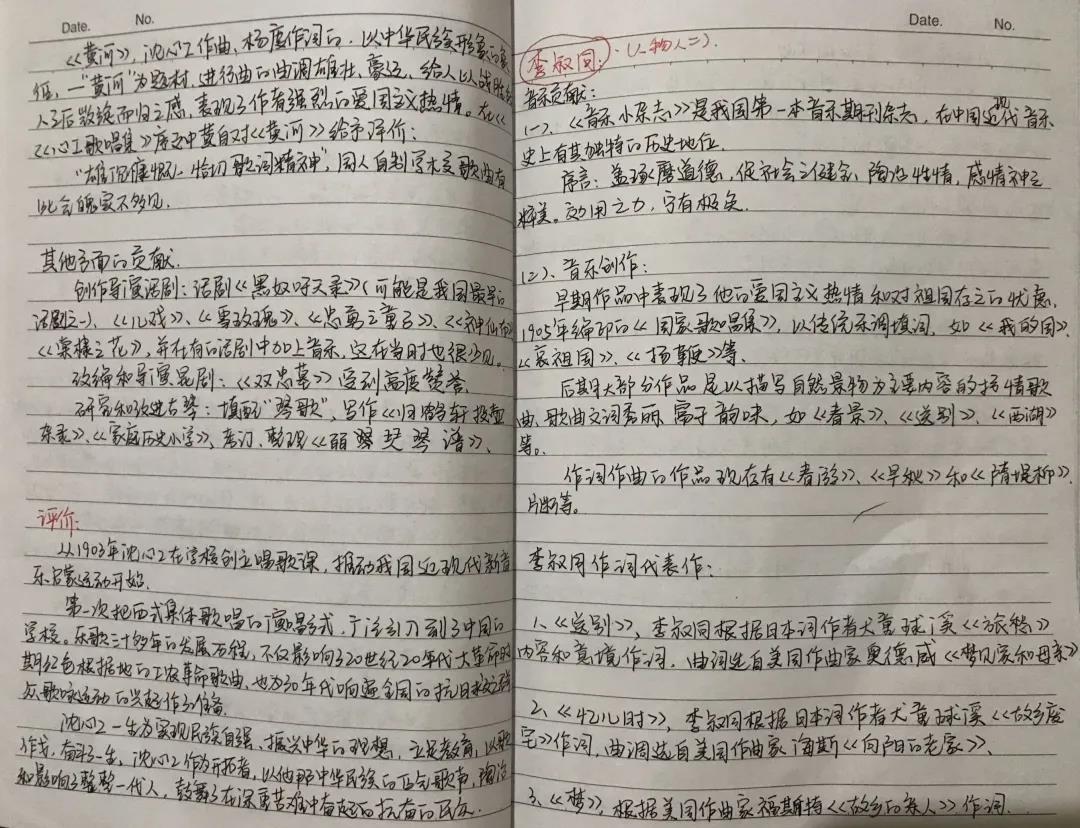 Date. No.
《黄河》,沈心工作曲、杨度作词的,以中华民族形象的象
征,一"黄河"为题材,进行曲的曲调雄壮、豪迈,给人以战胜
人之后凯旋而归之感,表现了作者强烈的爱国主义热情。在《
《心工歌唱集》序之中黄自对《黄河》给予评价:
"雄沉慷慨,恰切歌词精神",国人自制学校歌曲有
此气魄实不多见.
其他方面的贡献.
创作导演话剧:话剧《黑奴吁天录》(可能是我国最早的
话剧之一)、《儿戏》、《雪玫瑰》、《忠勇之童子》、《神仙
《棠棣之花》,并在有的话剧中加上音乐,这在当时也很少见.
改编和导演昆剧:《双忠墓》受到高度赞誉.
研究和改进古琴:填配"琴歌",写作《归鹤轩投壶
杂录》、《家庭历史小学》,考订、整理
评价:
从1903年沈心工在学校创立唱歌课,推动我国近现代新音
乐启蒙运动开始.
第一次把西式集体歌唱的演唱形式,广泛引入到了中国的
学校。乐歌三十多年的发展历程,不仅影响了20世纪20年代大革命时
期红色根据地的工农革命歌曲,也为30年代响遍全国的抗日救亡群
众歌咏运动的兴起作了准备.
沈心工一生为实现民族自强、振兴中华的理想,立足教育,以歌
奋斗一生,沈心工作为开拓者,以他那中华民族的正气歌声,陶冶
和影响了整整一代人,鼓舞了在深重苦难中奋起的抗奋的民众.
Date. No.
李叔同:(人物人二).
音乐贡献:
(一)、《音乐小杂志》是我国第一本音乐期刊杂志,在中国近现代音乐
史上有其独特的历史地位.
序言:盖琢磨道德,促社会之健全,陶冶性情,感情神之
粹美。效用之力,宁有极矣.
(2)、音乐创作:
早期作品中表现了他的爱国主义热情和对祖国存亡的忧虑.
1905年编印的《国学歌唱集》,以传统乐调填词.如《我的国》、
《哀祖国》、《扬鞭》等.
后期大部分作品是以描写自然景物为主要内容的抒情歌
曲、歌曲文词秀丽富于韵味,如《春景》、《送别》、《西湖》
等.
作词作曲的作品现存有《春游》、《早秋》和《隋堤柳》.
片断等。
李叔同作词代表作:
1、《送别》,李叔同根据日本词作者犬童球溪《旅愁》
内容和意境作词,曲调选自美国作曲家奥德威《梦见家和母亲》
2、《忆儿时》,李叔同根据日本词作者犬童球溪《故乡废
宅》作词,曲调选自美国作曲家海斯《向阳的老家》、
3、《梦》,根据美国作曲家福斯特《故乡的亲人》作词.